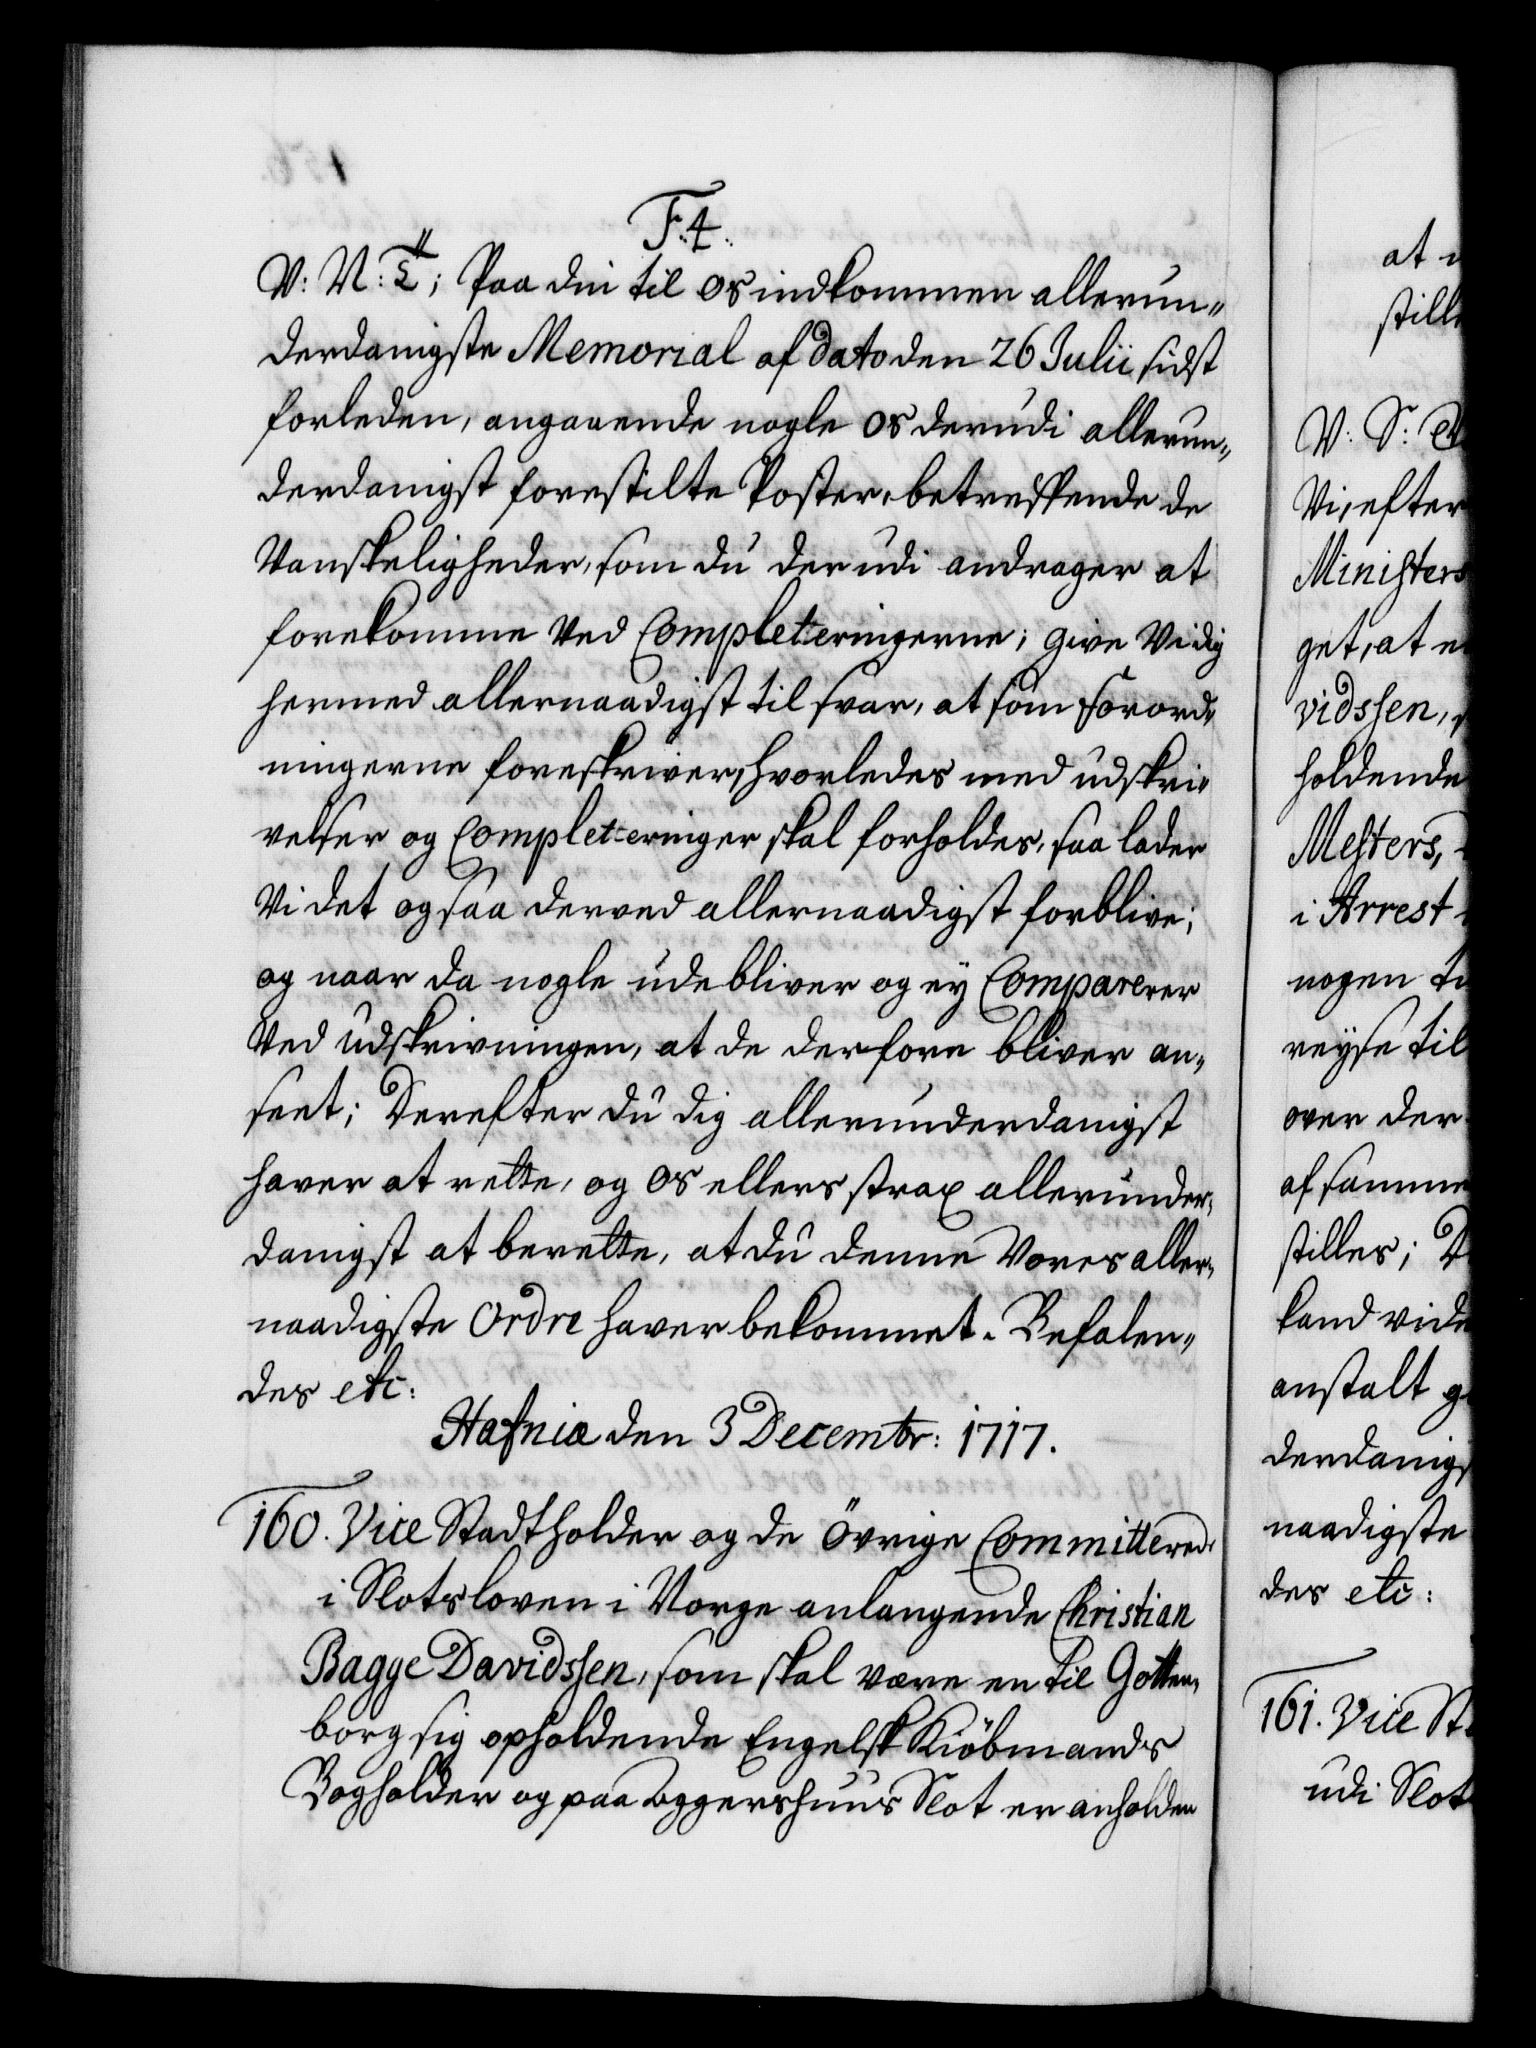 F. 4.
V: N: ; Paa din til os indkommen allerun¬
derdanigste Memorial af dato den 26 Julii sidst
forleden, angaaende nogle os derudi allerun¬
derdanigst forestilte Poster, betreffende de
Vanskeligheder, som du der udi andrager at
forekomme ved Completeringerne; give Vi dig
hermed allernaadigst til svar, at som Forord¬
ningerne foreskriver, hvorledes med udskri¬
velser og Completeringer skal forholdes, saa lader
Vi det og saa derved allernaadigst forblive;
og naar da nogle udebliver og ej Comparerer
Ved udskrivningen, at de derfore bliver an¬
seet; Derefter du dig allerunderdanigst
haver at rette, og os ellers strax allerunder¬
danigst at berette, at du denne Vores aller¬
naadigste Ordre haver bekommet. Befalen¬
des etc:
Hafniæ den 3 Decembr: 1717.
160. Vice Stadtholder og de övrige Committered:
i Slotsloven i Norge anlangende Christian
Bagge Davidssen, som skal være en til Gotten¬
borg sig opholdende Engelsk Kiöbmands
Bogholder og paa Aggershuus Slot er anholden
at
still
V: S:
Vi, efter
Ministers
get, at
vidssen,
holdende
Mesters,
i Arrest
nogen
reyse til
over der
af samme
stilles;
kand vide
anstalt
derdanigs
naadigste
des etc:
161. Vice St
udi Slot